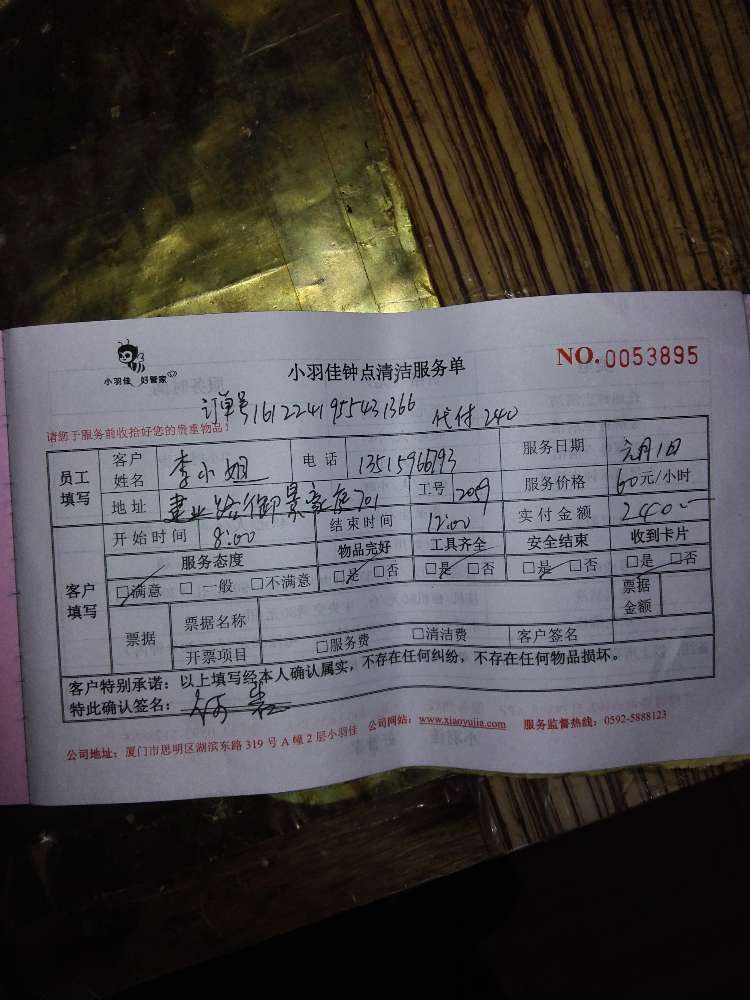 小羽佳 好管家
小羽佳钟点清洁服务单
NO. 0053895
订单号1612241955431366 代付240
请您于服务前收拾好您的贵重物品!
员工填写 客户姓名 李小姐 电话 服务日期 元月1日
地址 建业路御景家庭701 工号 2059 服务价格 60元/小时
开始时间 8:00 结束时间 12:00 实付金额 240.-
客户填写 服务态度 物品完好 工具齐全 安全结束 收到卡片
□满意 □一般 □不满意 □是 □否 □是 □否 □是 □否 □是 □否
票据 票据名称 票据金额
开票项目 □服务费 □清洁费 客户签名
客户特别承诺:以上填写经本人确认属实,不存在任何纠纷,不存在任何物品损坏。
特此确认签名:
公司地址:厦门市思明区湖滨东路 319 号 A 幢 2 层小羽佳 公司网站:www.xiaoyujia.com 服务监督热线:0592-5888123